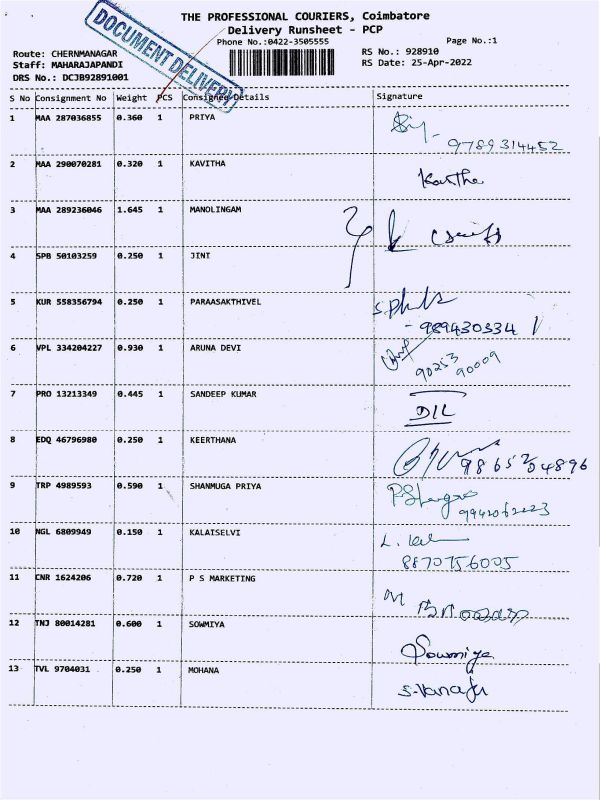 THE PROFESSIONAL COURIERS, Coimbatore
Delivery Runsheet - PCP
Phone No.:0422-3505555
Page No.:1
DOCUMENT DELIVERY
Route: CHERNMANAGAR
RS No.: 928910
Staff: MAHARAJAPANDI
RS Date: 25-Apr-2022
DRS No.: DCJB92891001
S No Consignment No Weight PCS Consignee Details Signature
1 MAA 287036855 0.360 1 PRIYA
9789314452
2 MAA 290070281 0.320 1 KAVITHA
Kavitha
3 MAA 289236046 1.645 1 MANOLINGAM
4 SPB 50103259 0.250 1 JINT
5 KUR 558356794 0.250 1 PARAASAKTHIVEL
- 989430334
6 VPL 334204227 0.930 1 ARUNA DEVI
90253
90009
7 PRO 13213349 0.445 1 SANDEEP KUMAR
DIL
8 EDQ 46796980 0.250 1 KEERTHANA
9865204896
9 TRP 4989593 0.590 1 SHANMUGA PRIYA
10 NGL 6809949 0.150 1 KALAISELVI
8870756005
11 CNR 1624206 0.720 1 P S MARKETING
12 TNJ 80014281 0.600 1 SOWMIYA
Sowmiya
13 TVL 9704031 0.250 1 MOHANA
S. Vanaja